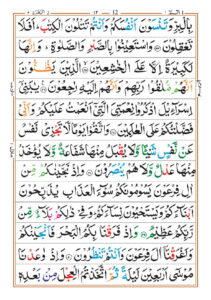 بِالْبِرِّ وَتَنْسَوْنَ اَنْفُسَكُمْ وَاَنْتُمْ تَتْلُوْنَ الْكِتٰبَ ؕ اَفَلَا
تَعْقِلُوْنَ ۝ وَاسْتَعِيْنُوْا بِالصَّبْرِ وَالصَّلٰوةِ ؕ وَاِنَّهَا
لَكَبِيْرَةٌ اِلَّا عَلَى الْخٰشِعِيْنَ ۝ الَّذِيْنَ يَظُنُّوْنَ
اَنَّهُمْ مُّلٰقُوْا رَبِّهِمْ وَاَنَّهُمْ اِلَيْهِ رٰجِعُوْنَ ۝ يٰبَنِيْۤ
اِسْرَآءِيْلَ اذْكُرُوْا نِعْمَتِيَ الَّتِيْۤ اَنْعَمْتُ عَلَيْكُمْ وَاَنِّيْ
فَضَّلْتُكُمْ عَلَى الْعٰلَمِيْنَ ۝ وَاتَّقُوْا يَوْمًا لَّا تَجْزِيْ نَفْسٌ
عَنْ نَّفْسٍ شَيْـًٔا وَّلَا يُقْبَلُ مِنْهَا شَفَاعَةٌ وَّلَا يُؤْخَذُ
مِنْهَا عَدْلٌ وَّلَا هُمْ يُنْصَرُوْنَ ۝ وَاِذْ نَجَّيْنٰكُمْ مِّنْ
اٰلِ فِرْعَوْنَ يَسُوْمُوْنَكُمْ سُوْٓءَ الْعَذَابِ يُذَبِّحُوْنَ
اَبْنَآءَكُمْ وَيَسْتَحْيُوْنَ نِسَآءَكُمْ ؕ وَفِيْ ذٰلِكُمْ بَلَآءٌ مِّنْ
رَّبِّكُمْ عَظِيْمٌ ۝ وَاِذْ فَرَقْنَا بِكُمُ الْبَحْرَ فَاَنْجَيْنٰكُمْ
وَاَغْرَقْنَاۤ اٰلَ فِرْعَوْنَ وَاَنْتُمْ تَنْظُرُوْنَ ۝ وَاِذْ وٰعَدْنَا
مُوْسٰۤى اَرْبَعِيْنَ لَيْلَةً ثُمَّ اتَّخَذْتُمُ الْعِجْلَ مِنْۢ بَعْدِهٖ